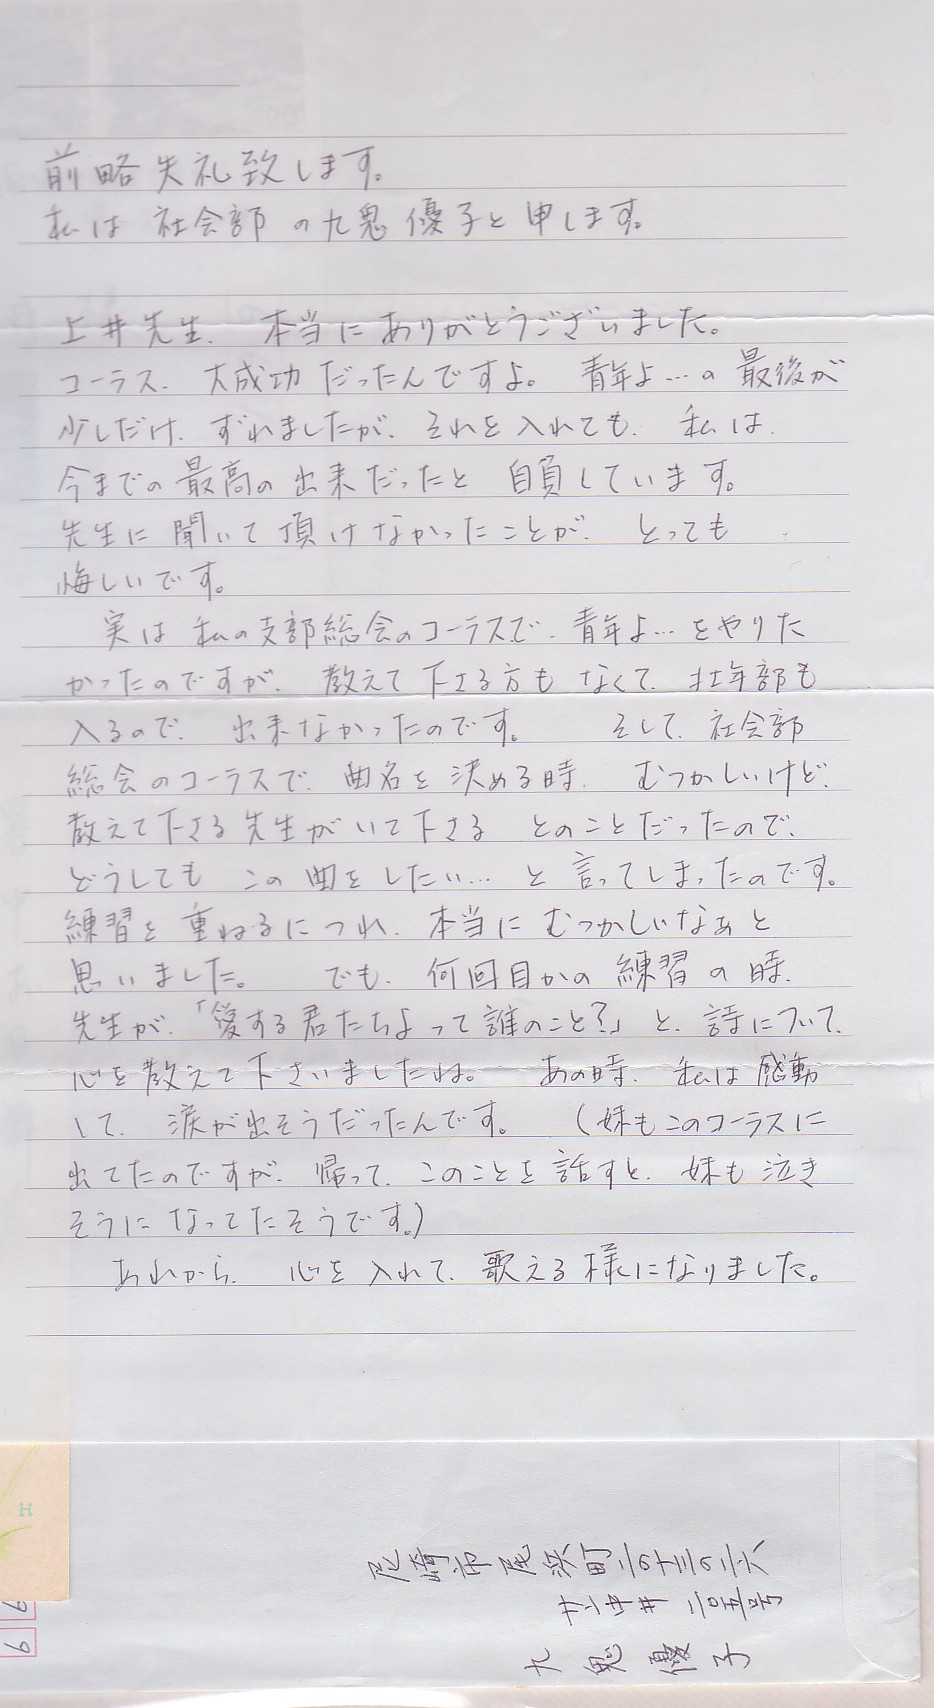 前略失礼致します。
私は社会部の九鬼優子と申します。
上井先生、本当にありがとうございました。
コーラス、大成功だったんですよ。青年よ…の最後が
少しだけ、ずれましたが、それを入れても、私は、
今までの最高の出来だったと自負しています。
先生に聞いて頂けなかったことが、とっても
悔しいです。
実は私の支部総会のコーラスで、青年よ…をやりた
かったのですが、教えて下さる方もなくて、壮年部も
入るので、出来なかったのです。そして、社会部
総会のコーラスで、曲名を決める時、むつかしいけど、
教えて下さる先生がいて下さるとのことだったので、
どうしてもこの曲をしたい…と言ってしまったのです。
練習を重ねるにつれ、本当にむつかしいなぁと
思いました。でも、何回目かの練習の時、
先生が、「愛する君たちよって誰のこと?」と、詩について、
心を教えて下さいましたね。あの時、私は感動
して、涙が出そうだったんです。(妹もこのコーラスに
出てたのですが、帰って、このことを話すと、妹も泣き
そうになってたそうです。)
あれから、心を入れて、歌える様になりました。
尼崎市尾浜町二の十三の二六
サン中井 二〇五号
九鬼優子
H
9
9